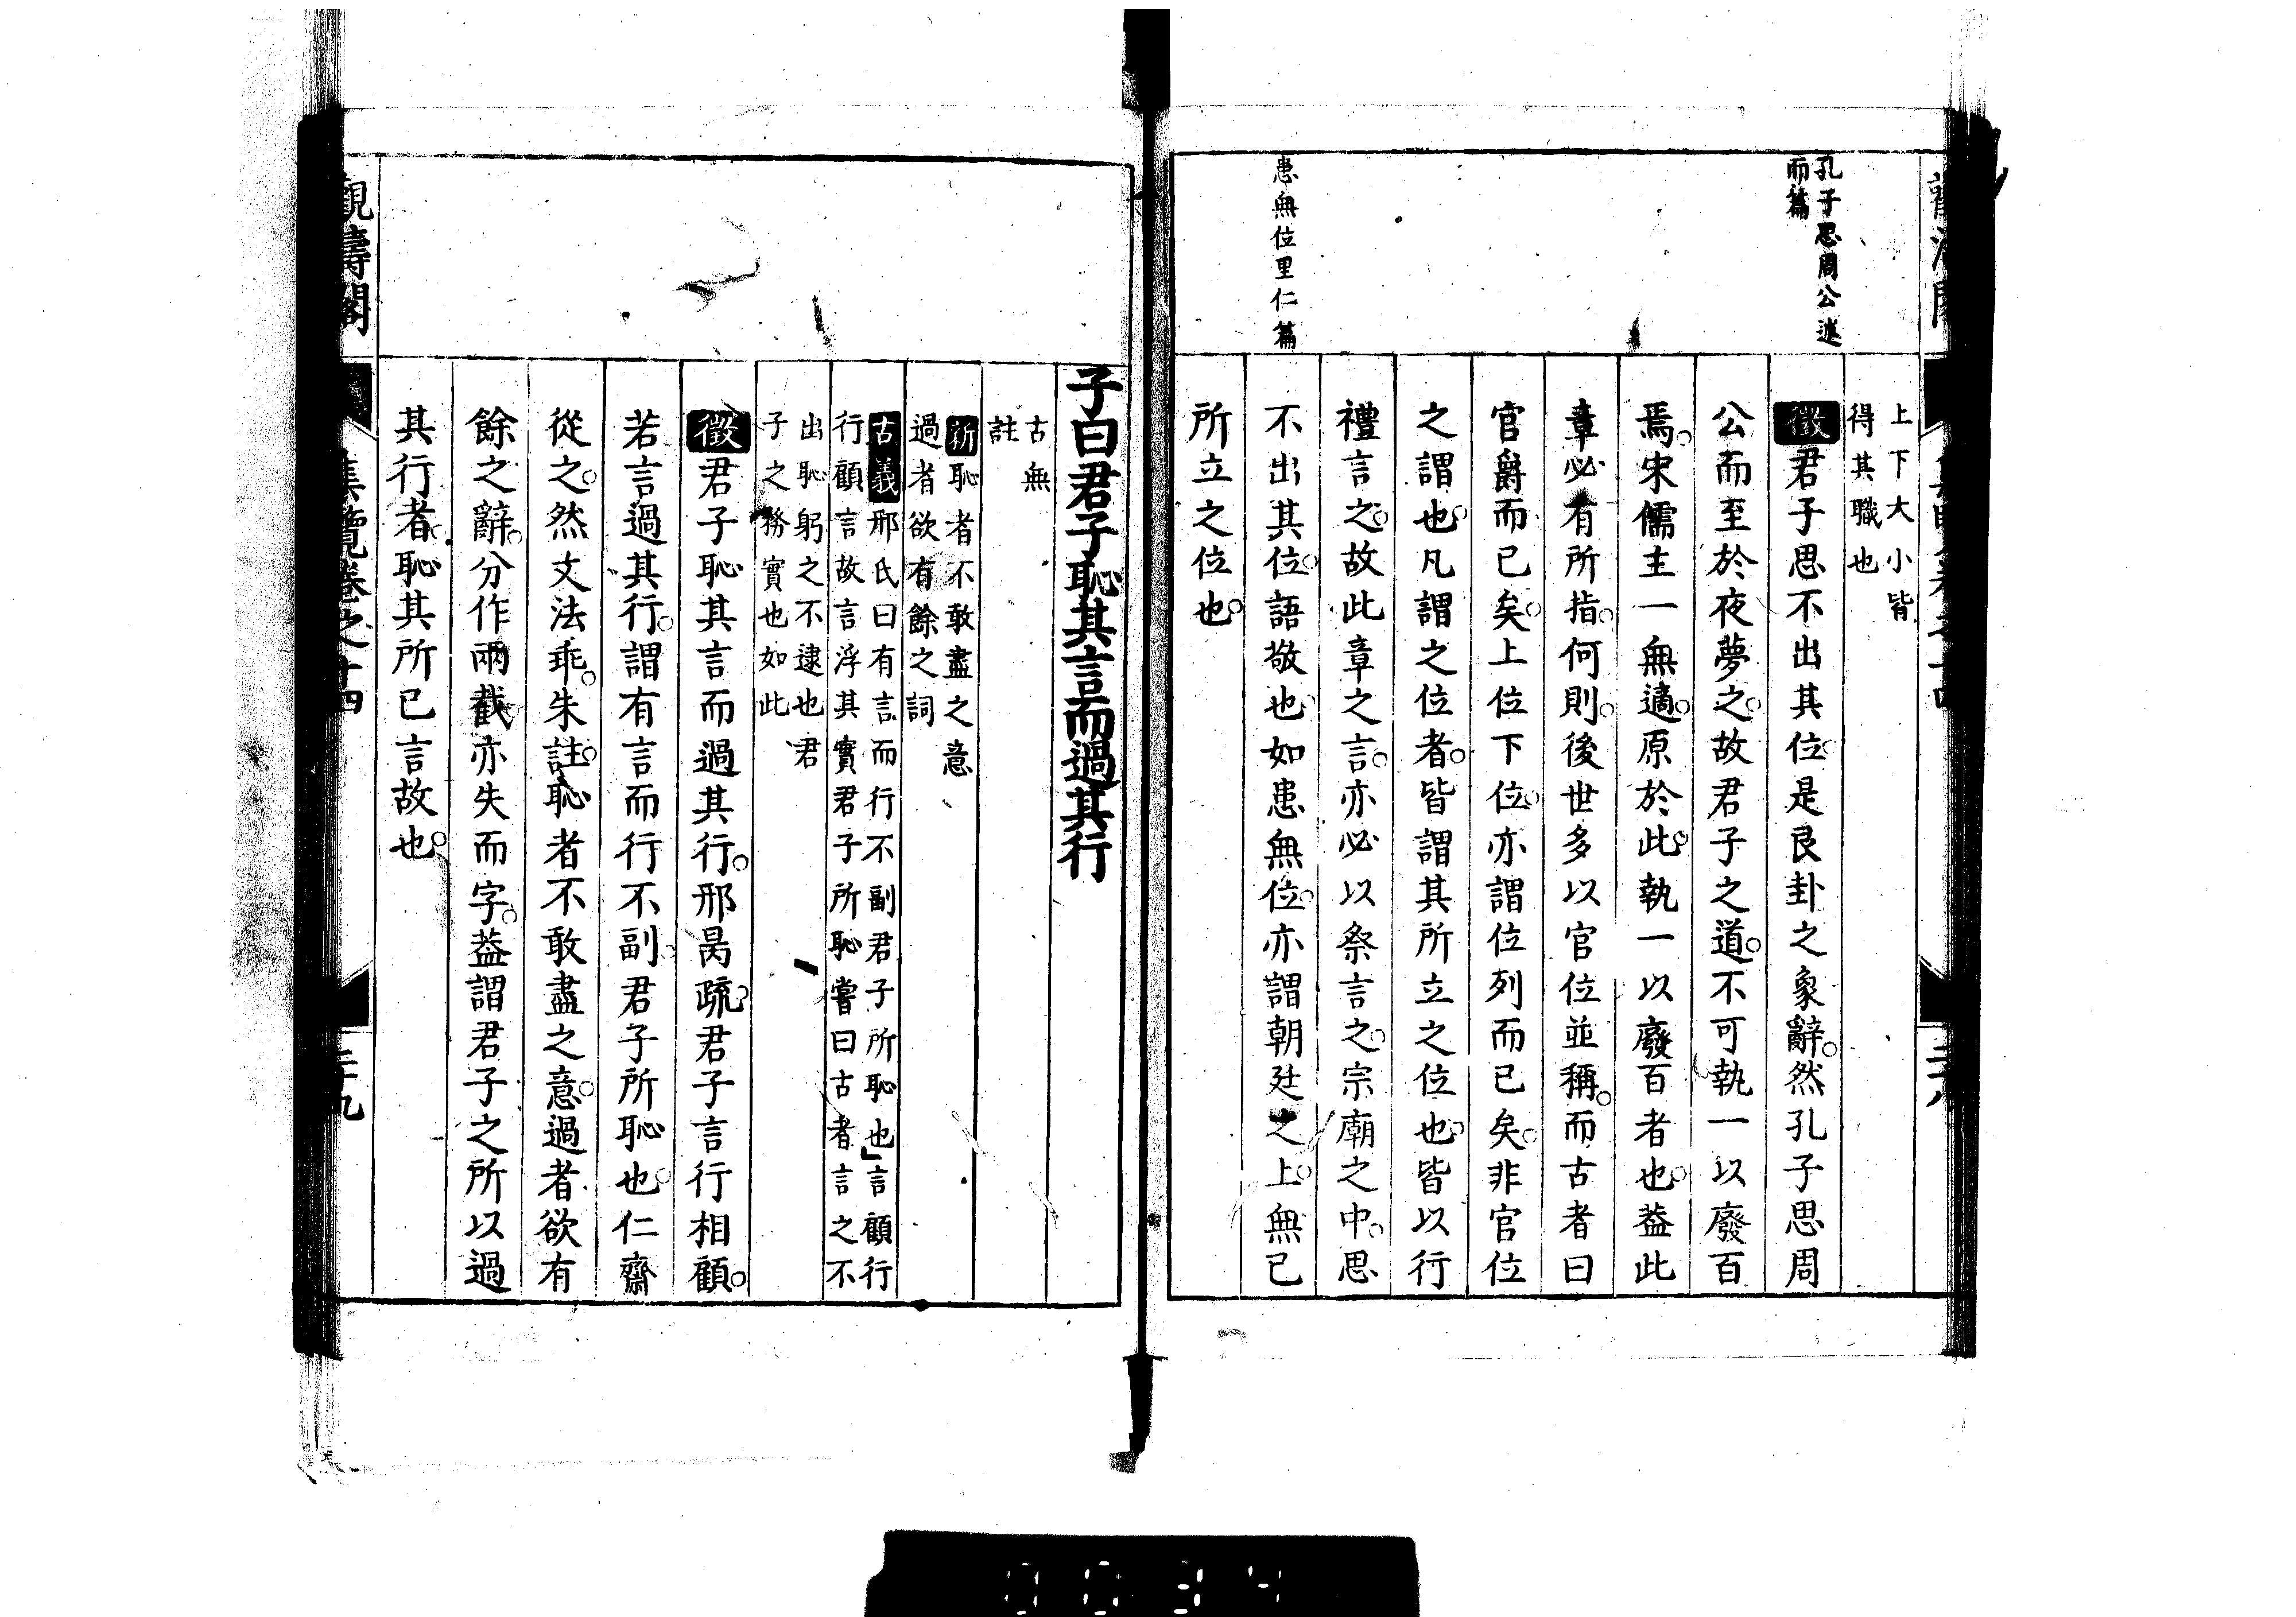 孔子思周公述
而篇
患無位里仁篇
上下大小皆
得其職也
徵君子思不出其位是艮卦之象辭然孔子思周
公而至於夜夢之故君子之道不可執一以廢百
焉宋儒主一無適原於此執一以廢百者也葢此
章必有所指何則後世多以官位並稱而古者曰
官爵而已矣上位下位亦謂位列而已矣非官位
之謂也凡謂之位者皆謂其所立之位也皆以行
禮言之故此章之言亦必以祭言之宗廟之中思
不出其位語敬也如患無位亦謂朝廷之上無已
所立之位也
子曰君子恥其言而過其行
古無
註
新恥者不敢盡之意
過者欲有餘之詞
古義邢氏曰有言而行不副君子所恥也」言顧行
行顧言故言浮其實君子所恥嘗曰古者言之不
出恥躬之不逮也君
子之務實也如此
徵君子恥其言而過其行邢昺疏君子言行相顧
若言過其行謂有言而行不副君子所恥也仁齋
從之然文法乖朱註恥者不敢盡之意過者欲有
餘之辭分作兩截亦失而字葢謂君子之所以過
其行者恥其所已言故也
觀濤閣
集覽卷之十四
二十九
0034